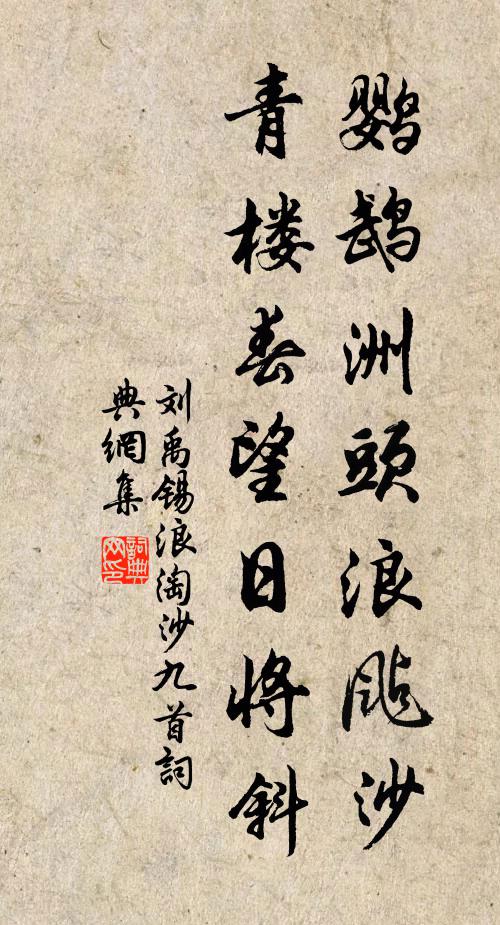 鹦鹉洲頭浪飐沙
青楼春望日将斜
刘禹锡浪淘沙九首詞
典網集
詞典网印